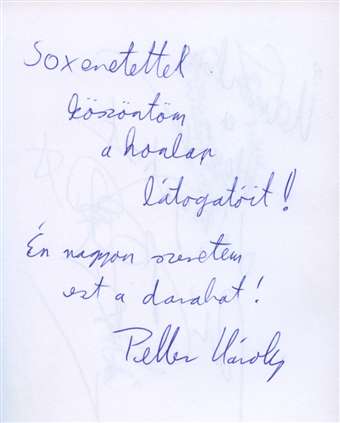 Soxeretettel
köszöntöm
a honlap
látogatóit!
Én nagyon szeretem
ezt a darabot!
Peller Károly